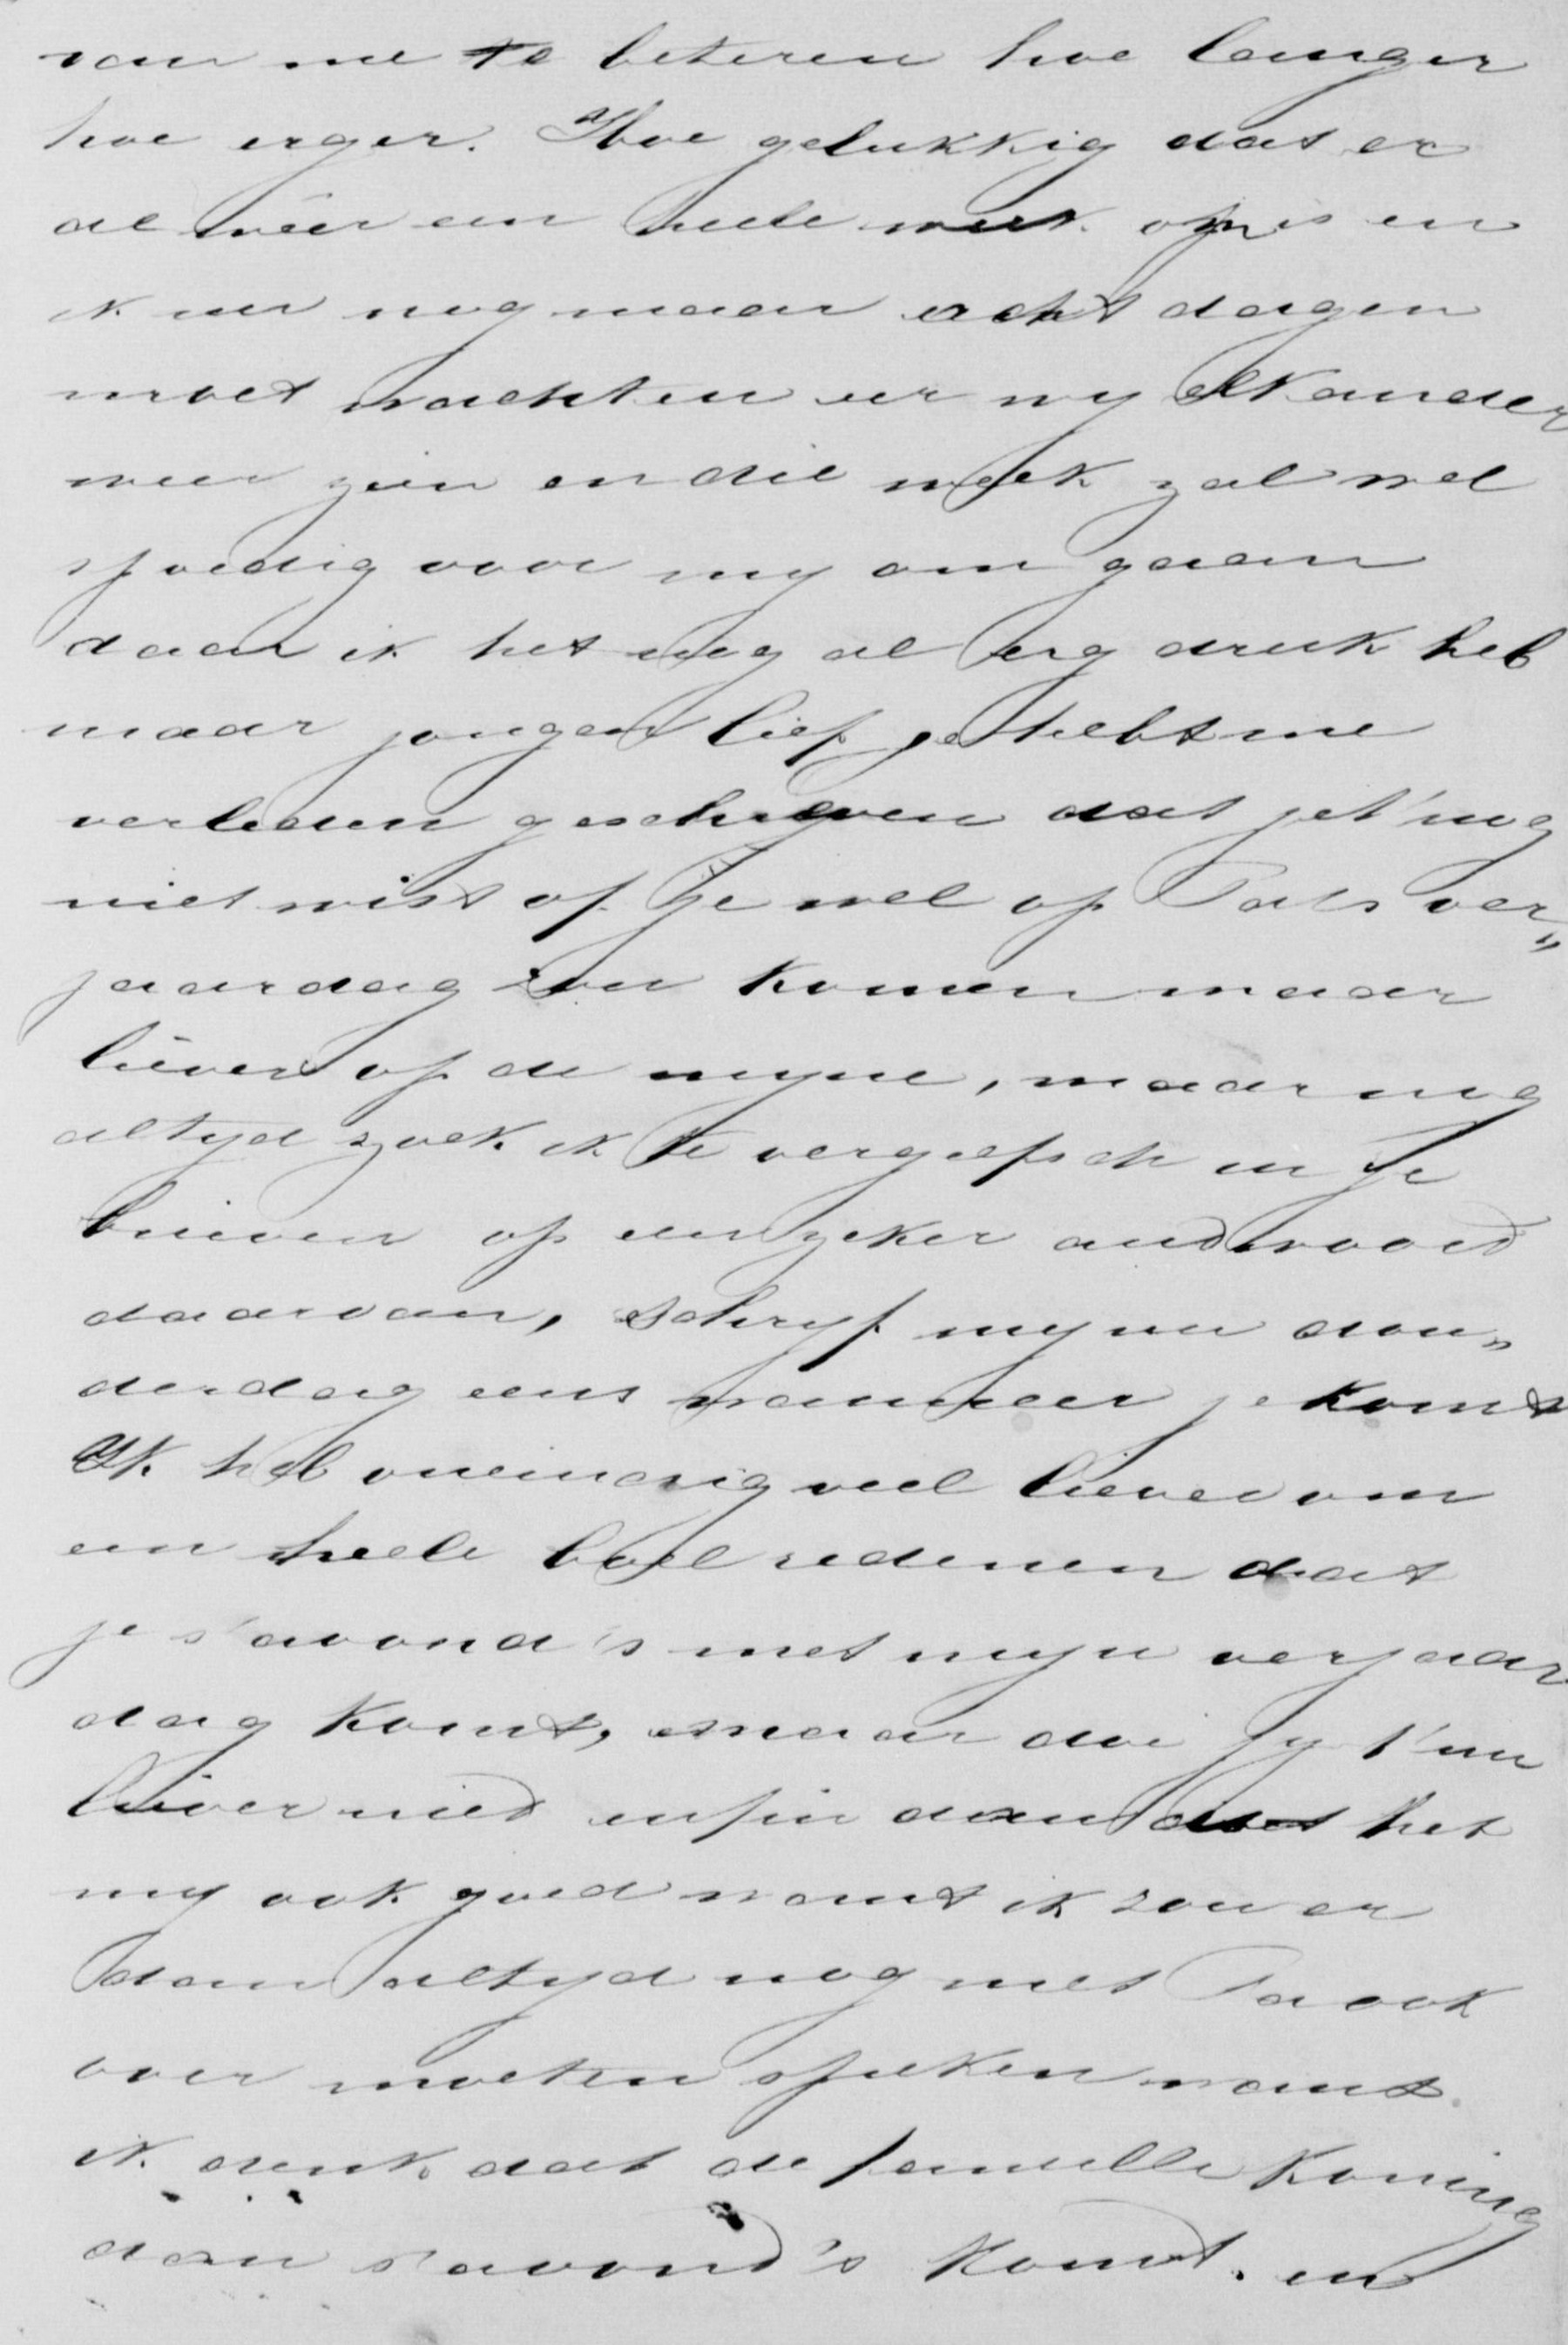 van me te beteren hoe langer
hoe erger. Hoe gelukkig dat er
al weer een heele week om is en
ik nu nog maar acht dagen
moet wachten eer wy elkander
weer zien en die week zal wel
spoedig voor my om gaan
daar ik het nog al erg druk heb
maar jongen lief je hebt me
verleden geschreven dat je t' nog
niet wist of je wel op Pa's ver„
jaardag zou komen maar
liever op de myne, maar nog
altyd zoek ik te vergeefsch in je
brieven op een zeker andwoord
daarvan, schryf my nu don„
derdag eens wanneer je komt
Ik heb oneindig veel liever om
een heele boel redenen dat
je s'avond's met myn verjaar
dag komt, maar doe jy t' nu
liever niet enfin dan is het
my ook goed want ik zou er
dan altyd nog met Pa ook
over moeten spreken want
ik denk dat de famielle Koning
dan s'avond's komt. en